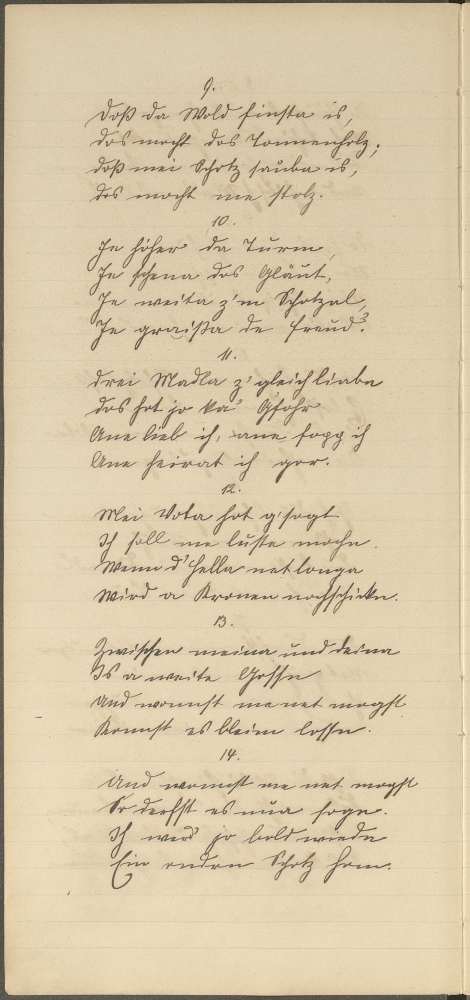 9.
Doß da Wold finsta is,
das macht das Tonnenholz;
doß mei Schotz sauba is,
des mocht me stolz.
10.
Je höher da Turm,
Je schena das Gläut,
Je weita z'm Schotzal,
Je graißa de Freud.
11.
Drei Madla z'gleich liaba
das hot jo ka' Gfohr
Ane lieb ich, ane fopp ich
Ane heirat ich gor.
12.
Mei Vota hot g'sogt
Ich soll me lusta mocha.
Wenn d'Hella net longa
Wird a Kronen nochschicka.
13.
Zwischen meina und deina
Is a weite Gossn
Und wonnst me net mogst
Konnst es bleim lossn.
14.
Und wonnst me net mogst
So derfst es nua sogn.
Ich werd jo bold wieda
Ein ondren Schotz hom.